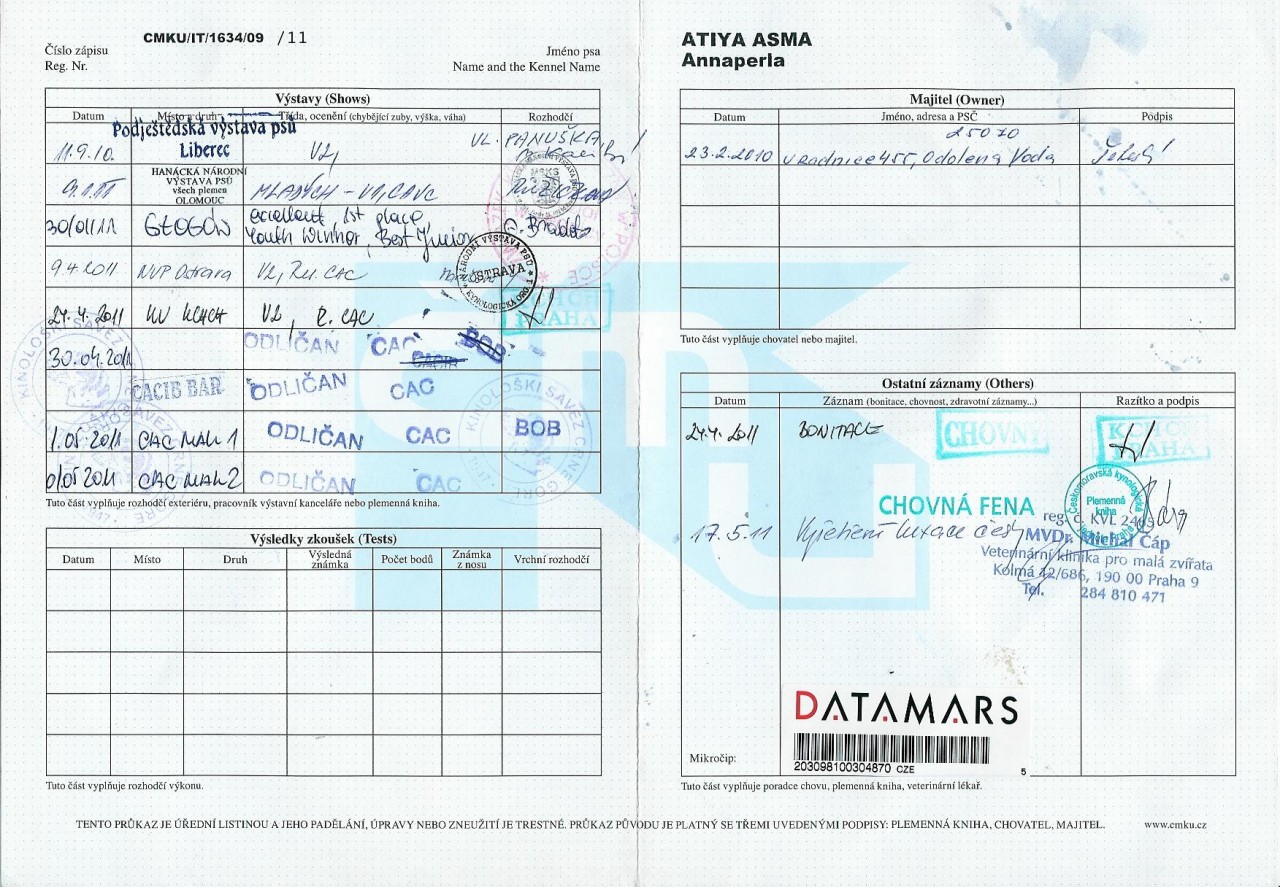 CMKU/IT/1634/09 /11
Číslo zápisu
Reg. Nr.
Jméno psa
Name and the Kennel Name
Výstavy (Shows)
Datum Místo a druh Třída, ocenění (chybějící zuby, výška, váha) Rozhodčí
Podještědská výstava psů
Liberec
11.9.10. V2, VL. PANUŠKA
HANÁCKÁ NÁRODNÍ
VÝSTAVA PSŮ
všech plemen
OLOMOUC
9.1.11 MLADÝCH - V1, CAJC
30/01/11 GŁOGÓW excellent, 1st place
Youth Winner, Best Junior
9.4.2011 NVP Ostrava V2, Res. CAC
NÁRODNÍ VÝSTAVA PSŮ
OSTRAVA
KYNOLOGICKÁ ORG. 1
24.4.2011 KV KCHCH V2, R. CAC
KCHCH
PRAHA
30.04.2011 ODLIČAN CAC CACIB BOB
CACIB BAR ODLIČAN CAC
1.05.2011 CAC MAN 1 ODLIČAN CAC BOB
01/05 2011 CAC MAN 2 ODLIČAN CAC
KINOLOŠKI SAVEZ CRNE GORE
Tuto část vyplňuje rozhodčí exteriéru, pracovník výstavní kanceláře nebo plemenná kniha.
Výsledky zkoušek (Tests)
Datum Místo Druh Výsledná známka Počet bodů Známka z nosu Vrchní rozhodčí
Tuto část vyplňuje rozhodčí výkonu.
ATIYA ASMA
Annaperla
Majitel (Owner)
Datum Jméno, adresa a PSČ Podpis
25070
23.2.2010 U radnice 455, Odolena Voda
Tuto část vyplňuje chovatel nebo majitel.
Ostatní záznamy (Others)
Datum Záznam (bonitace, chovnost, zdravotní záznamy...) Razítko a podpis
24.4.2011 BONITACE CHOVNÝ KCHCH
PRAHA
CHOVNÁ FENA
Českomoravská kynologická
Plemenná
kniha
17.5.11 Vyšetření luxace čéšky
reg. č. KVL 2463
MVDr. Michal Čáp
Veterinární klinika pro malá zvířata
Kolmá 12/686, 190 00 Praha 9
Tel. 284 810 471
DATAMARS
Mikročip:
203098100304870 CZE
5
Tuto část vyplňuje poradce chovu, plemenná kniha, veterinární lékař.
TENTO PRŮKAZ JE ÚŘEDNÍ LISTINOU A JEHO PADĚLÁNÍ, ÚPRAVY NEBO ZNEUŽITÍ JE TRESTNÉ. PRŮKAZ PŮVODU JE PLATNÝ SE TŘEMI UVEDENÝMI PODPISY: PLEMENNÁ KNIHA, CHOVATEL, MAJITEL.
www.cmku.cz